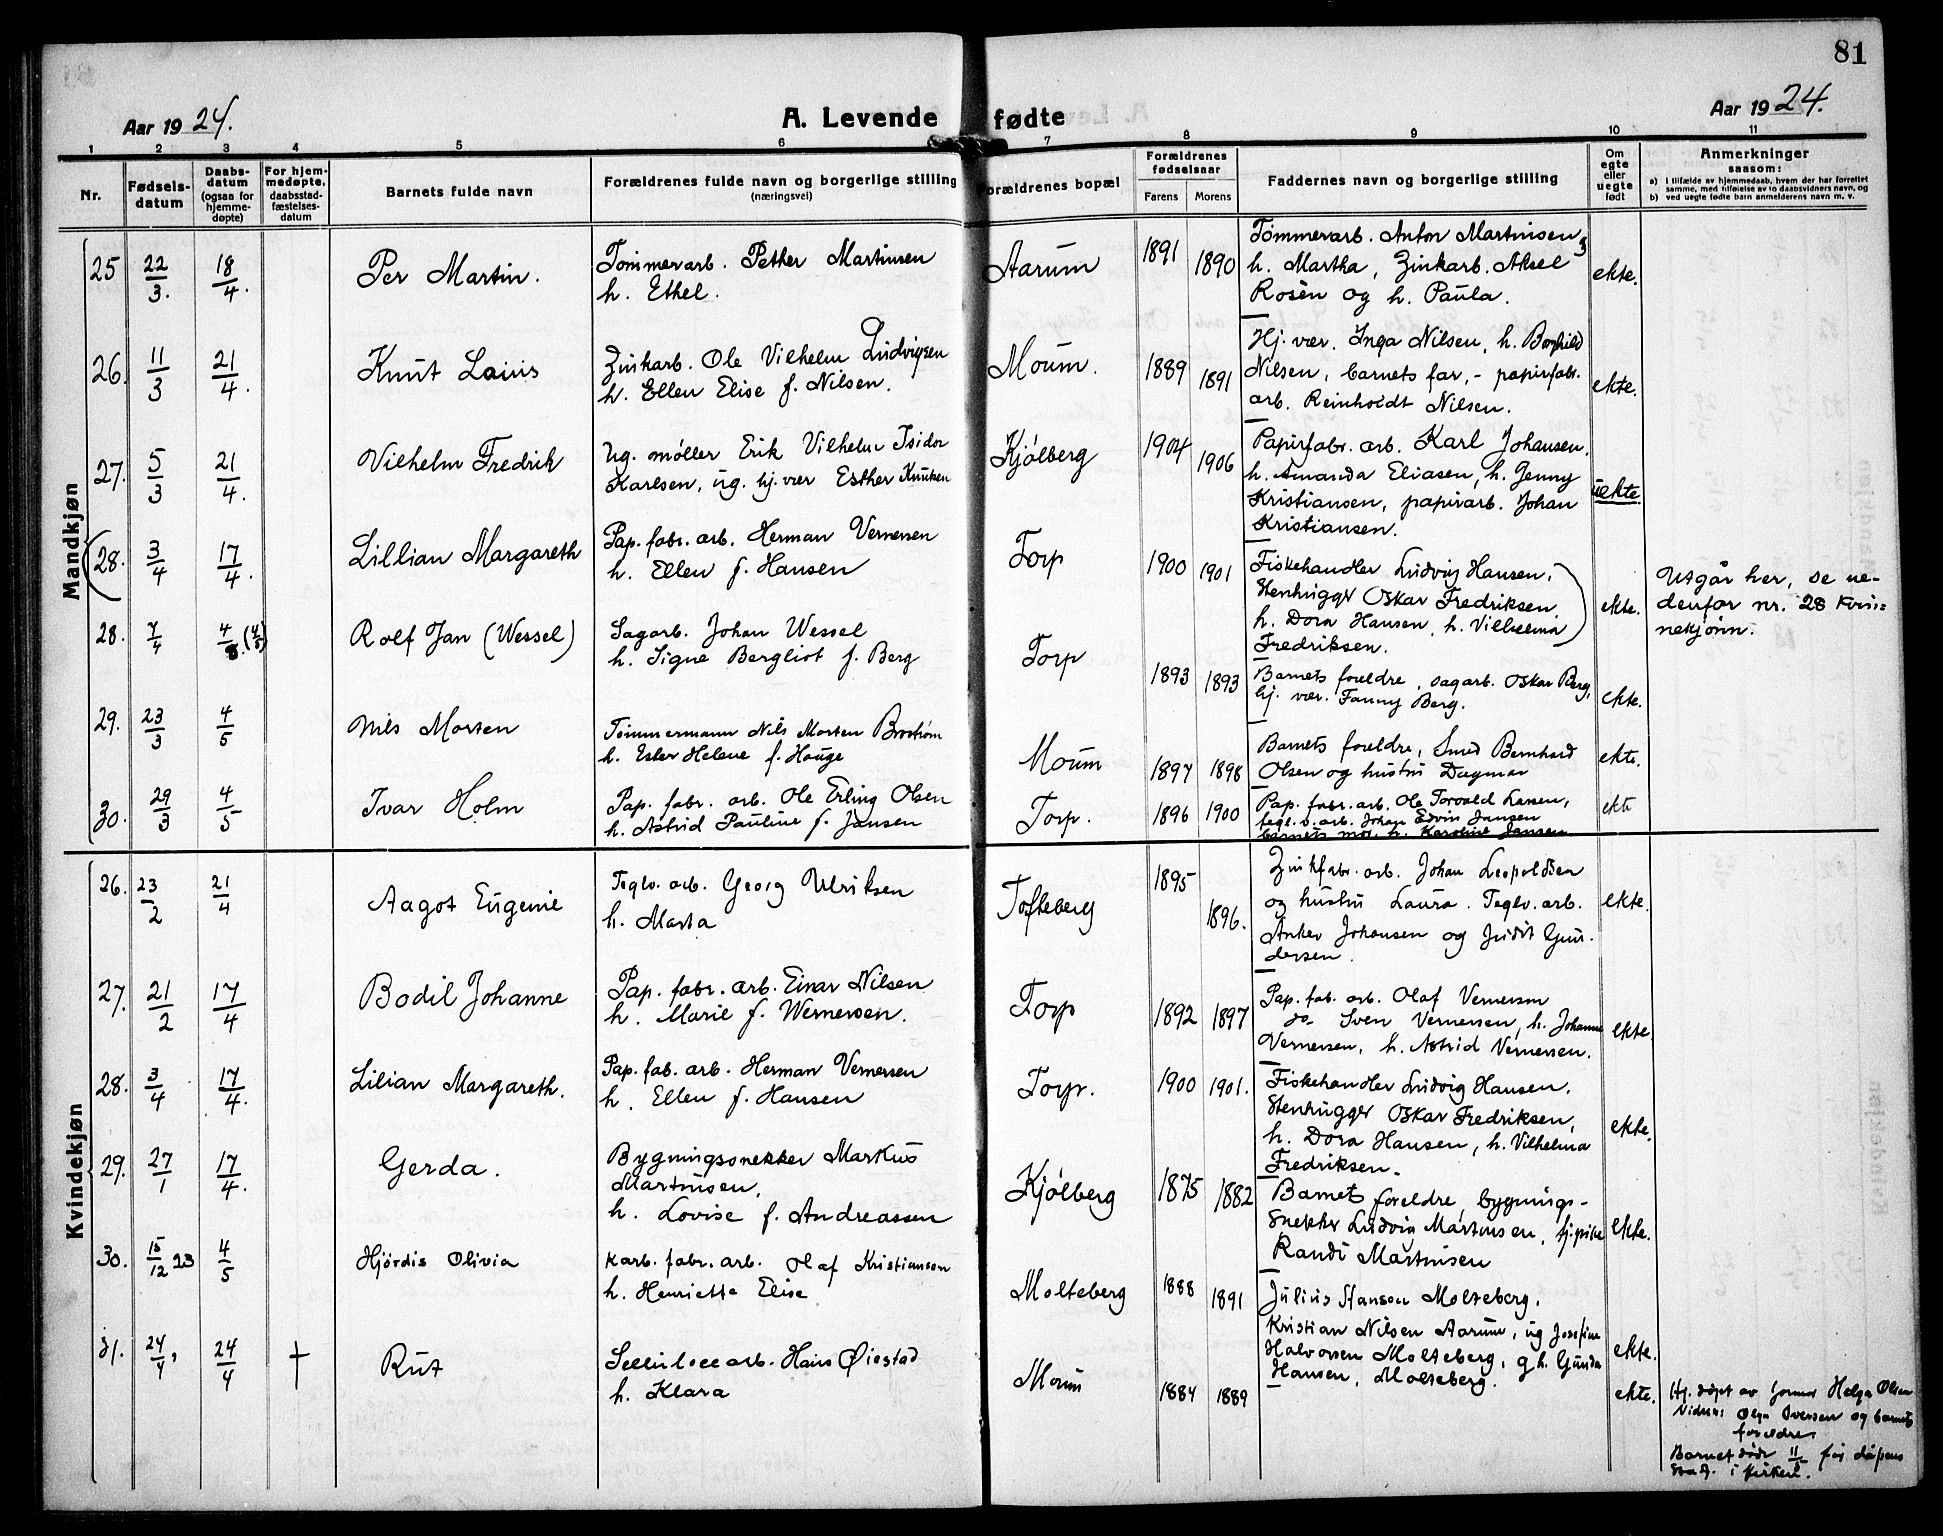 81
Aar 1924.
A. Levende fødte
Aar 1924.
1 2 3 4 5 6 7 8 9 10 11
Nr.
Fødsels-
datum
Daabs-
datum
(ogsaa for
hjemme-
døpte)
For hjem-
medøpte,
daabsstad-
fæstelses-
datum
Barnets fulde navn
Forældrenes fulde navn og borgerlige stilling
(næringsvei)
Forældrenes bopæl
Forældrenes
fødselsaar
Farens Morens
Faddernes navn og borgerlige stilling
Om
egte
eller
uegte
født
Anmerkninger
saasom:
a) i tilfælde av hjemmedaab, hvem der har forrettet
samme, med tilføielse av to daabsvidners navn, og
b) ved uegte fødte barn anmelderens navn m. v.
Mandkjøn
25 22/3. 18/4. Per Martin.
Tømmerarb. Pether Martinsen
h. Ethel.
Aarum 1891 1890
Tømmerarb. Anton Martinsen
h. Martha, Zinkarb. Aksel
Rosèn og h. Paula.
ekte.
26. 11/3 21/4. Knut Lairis
Zinkarb. Ole Vilhelm Ludvigsen
h. Ellen Elise f. Nilsen.
Moum. 1889 1891
Hj. vær. Inga Nilsen, h. Borghild
Nilsen, barnets far, - papirfabr.
arb. Reinholdt Nilsen.
ekte.
27. 5/3 21/4. Vilhelm Fredrik
Ug. møller Erik Vilhelm Isidor
Karlsen, ug. hj. vær Esther Knutsen
Kjølberg 1904 1906
Papirfabr. arb. Karl Johansen,
h. Amanda Eliasen, h. Jenny
Kristiansen, papirarb. Johan
Kristiansen.
uekte.
(28. 3/4 17/4. Lillian Margareth
Pap. fabr. arb. Herman Vernersen
h. Ellen f. Hansen
Torp 1900 1901
Fiskehandler Ludvig Hansen,
Stenhugger Oskar Fredriksen
h. Dora Hansen, h. Vilhelmia
Fredriksen.
ekte.
Utgår her, se ne-
denfor nr. 28 Kvin=
nekjønn.
28. 7/4 4/5 (4/5) Rolf Jan (Wessel)
Sagarb. Johan Wessel
h. Signe Bergliot f. Berg
Torp 1893 1893
Barnets foreldre, sagarb. Oskar Berg,
hj. vær. Fanny Berg.
ekte.
29. 23/3 4/5 Nils Morten
Tømmermann Nils Morten Brostrøm
h. Ester Helene f. Hauge
Moum 1897 1898
Barnets foreldre, Smed Bernhard
Olsen og hustru Dagmar
ekte.
30. 29/3 4/5 Ivar Holm
Pap. fabr. arb. Ole Erling Olsen
h. Astrid Pauline f. Jansen
Torp. 1896 1900
Pap. fabr. arb. Ole Torvald Larsen,
tegl.v. arb. Johan Edvin Jansen
barnets mor, h. Karoline Jansen
ekte
Kvindekjøn
26. 23/2 21/4 Aagot Eugenie
Teglv. arb. Georg Ulriksen
h. Marta
Tofteberg 1895 1896.
Zinkfabr. arb. Johan Leopoldsen
og hustru Laura. Teglv. arb.
Anker Johansen og Judit Gun-
dersen.
ekte.
27. 21/2 17/4 Bodil Johanne
Pap. fabr. arb. Einar Nilsen
h. Marie f. Wernersen.
Torp 1892 1897
Pap. fab. arb. Olaf Vernersen
do Sven Vernersen, h. Johanne
Vernersen, h. Astrid Vernersen.
ekte
28. 3/4 17/4. Lilian Margareth.
Pap. fab. arb. Herman Vernersen
h. Ellen f. Hansen
Torp. 1900 1901.
Fiskehandler Ludvig Hansen.
Stenhugger Oskar Fredriksen,
h. Dora Hansen, h. Vilhelmia
Fredriksen.
ekte.
29. 27/1 17/4. Gerda.
Bygningssnekker Markus
Martinsen,
h. Lovise f. Andreassen
Kjølberg 1875 1882
Barnets foreldre, bygnings-
snekker Ludvig Martinsen, hj. pike
Randi Martinsen
ekte.
30. 15/12 23 4/5 Hjördis Olivia
Karb. fabr. arb. Olaf Kristiansen
h. Henriette Elise
Molteberg 1888 1891
Julius Hanson Molteberg,
Kristian Nilsen Aarum, ug Josefine
Halvorsen Molteberg, g.h. Gunda
Hansen, Molteberg.
ekte.
31. 24/4, 24/4 † Rut
Cellulosearb. Hans Øiestad
h. Klara
Moum 1884 1889
ekte.
Hj. døpt av Jormor Helga Olsen
Vidner: Olga Iversen og barnets
foreldre.
Barnet døde før dåpens
i kirken.